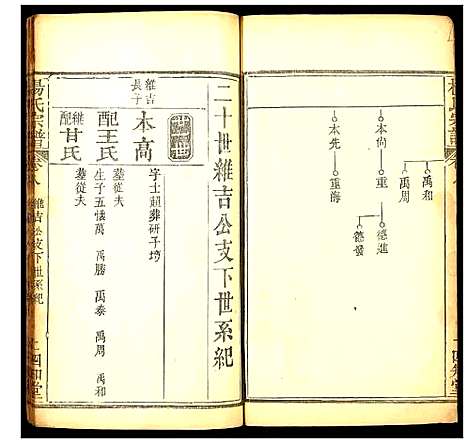 禹和
禹周
本尚 重 德進
德發
本先 重海
二十世維吉公支下世系紀
維吉長子
本高
字士超葬研子塆
配王氏
墓從夫
生子五懷萬 禹勝 禹泰 禹周 禹和
繼配甘氏
墓從夫
楊氏宗譜 卷八 維吉公支下世系紀
四知堂